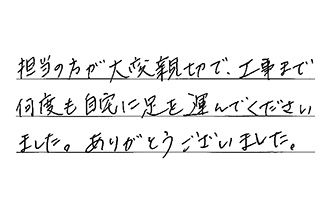 担当の方が大変親切で、工事まで
何度も自宅に足を運んでください
ました。ありがとうございました。